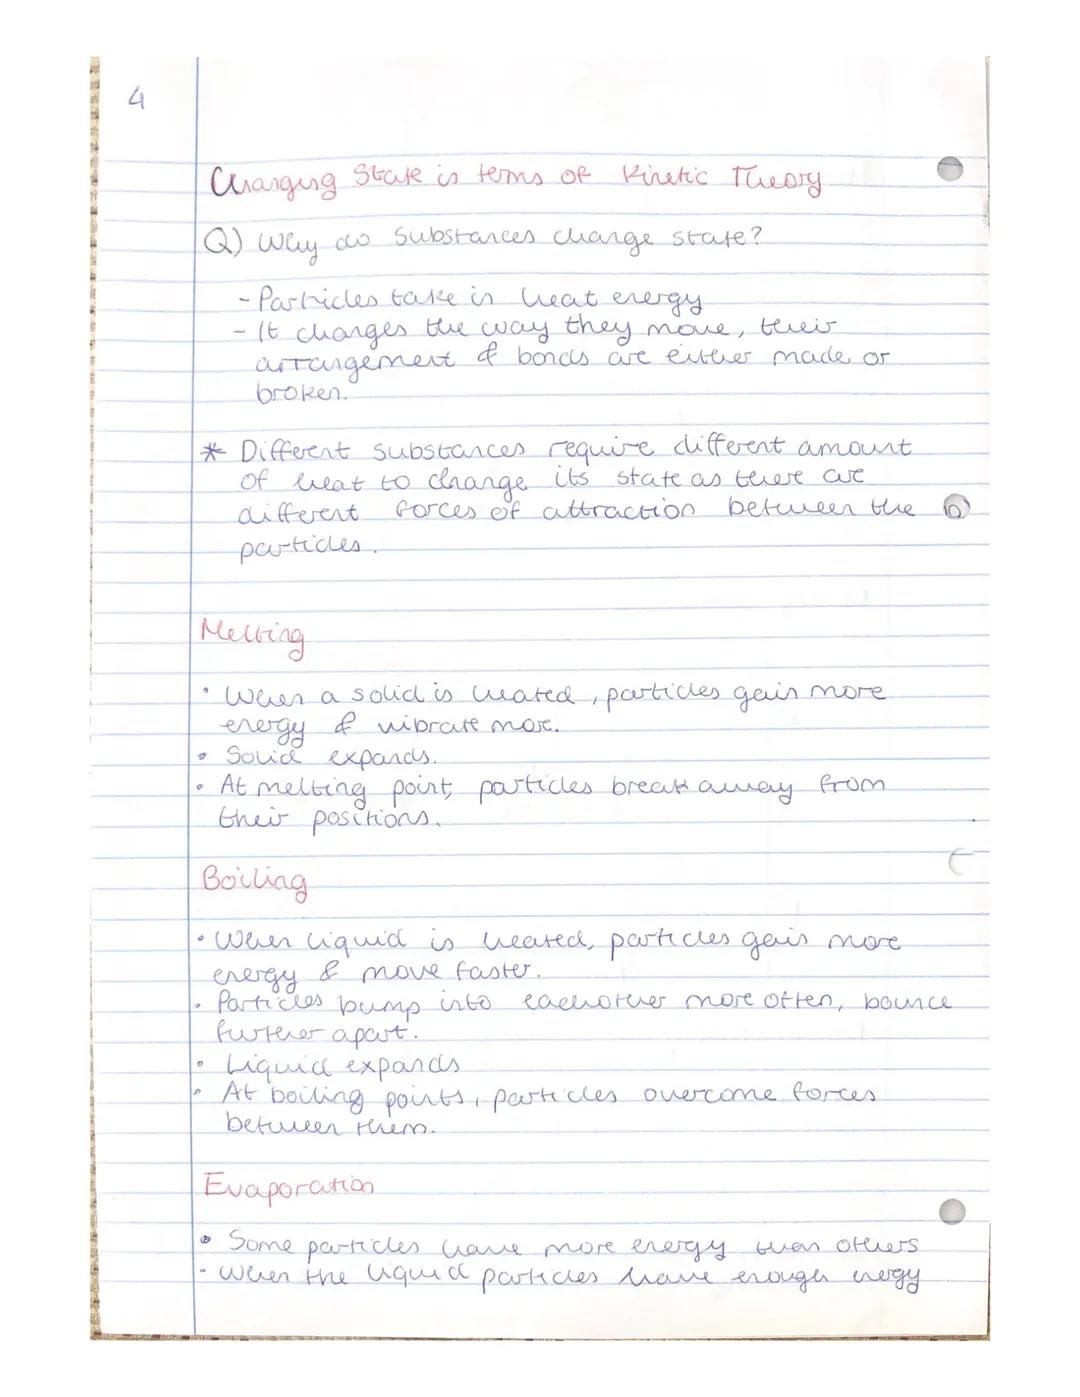 4
Changing State is terms of Kinetic Theory
Q) Why do Substances change state?
- Particles take in heat energy
- It changes the way they move, their
arrangement & bonds are either made or
broken.
* Different substances require different amount
of heat to change its state as there are
different forces of attraction between the
particles.
Melting
• When a solid is heated, particles gain more
energy & vibrate more.
• Solid expands.
• At melting point, particles break away from
their positions.
Boiling
• When liquid is heated, particles gain more
energy & move faster.
• Particles bump into eachother more often, bounce
further apart.
• Liquid expands
• At boiling points, particles overcome forces
between them.
Evaporation
• Some particles have more energy than others
• When the liquid particles have enough energy